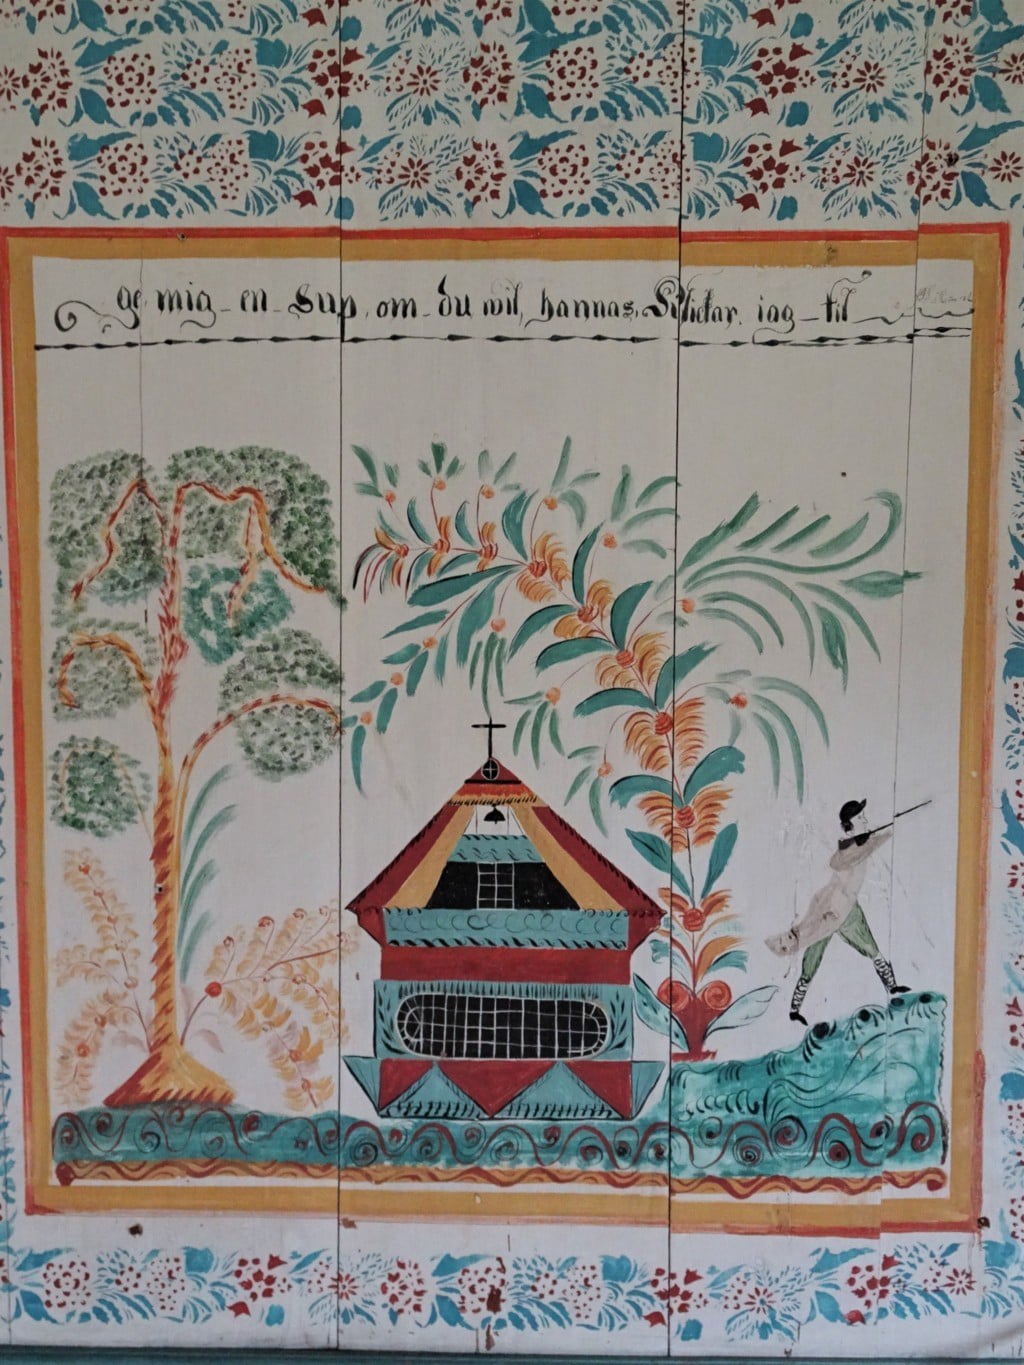 ge mig en Sup, om du wil, hannas, Klickar iag til